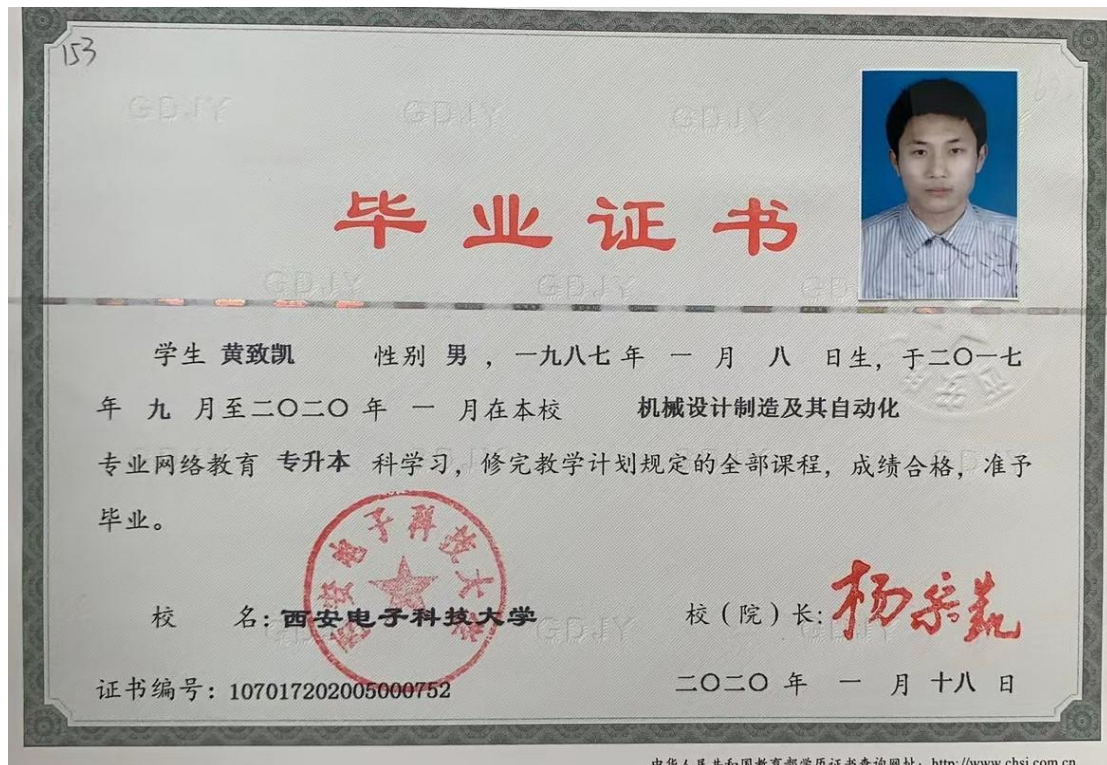 153
GDJY GDJY GDJY
毕业证书
GDJY GDJY GD
学生 黄致凯 性别 男 ，一九八七 年 一 月 八 日生，于二〇一七
年 九 月至二〇二〇 年 一 月在本校 机械设计制造及其自动化
专业网络教育 专升本 科学习，修完教学计划规定的全部课程，成绩合格，准予
毕业。
西安电子科技大学
校 名：西安电子科技大学 校（院）长：杨宗凯
GDJY
证书编号：107017202005000752 二〇二〇 年 一 月 十八 日
中华人民共和国教育部学历证书查询网址：http://www.chsi.com.cn